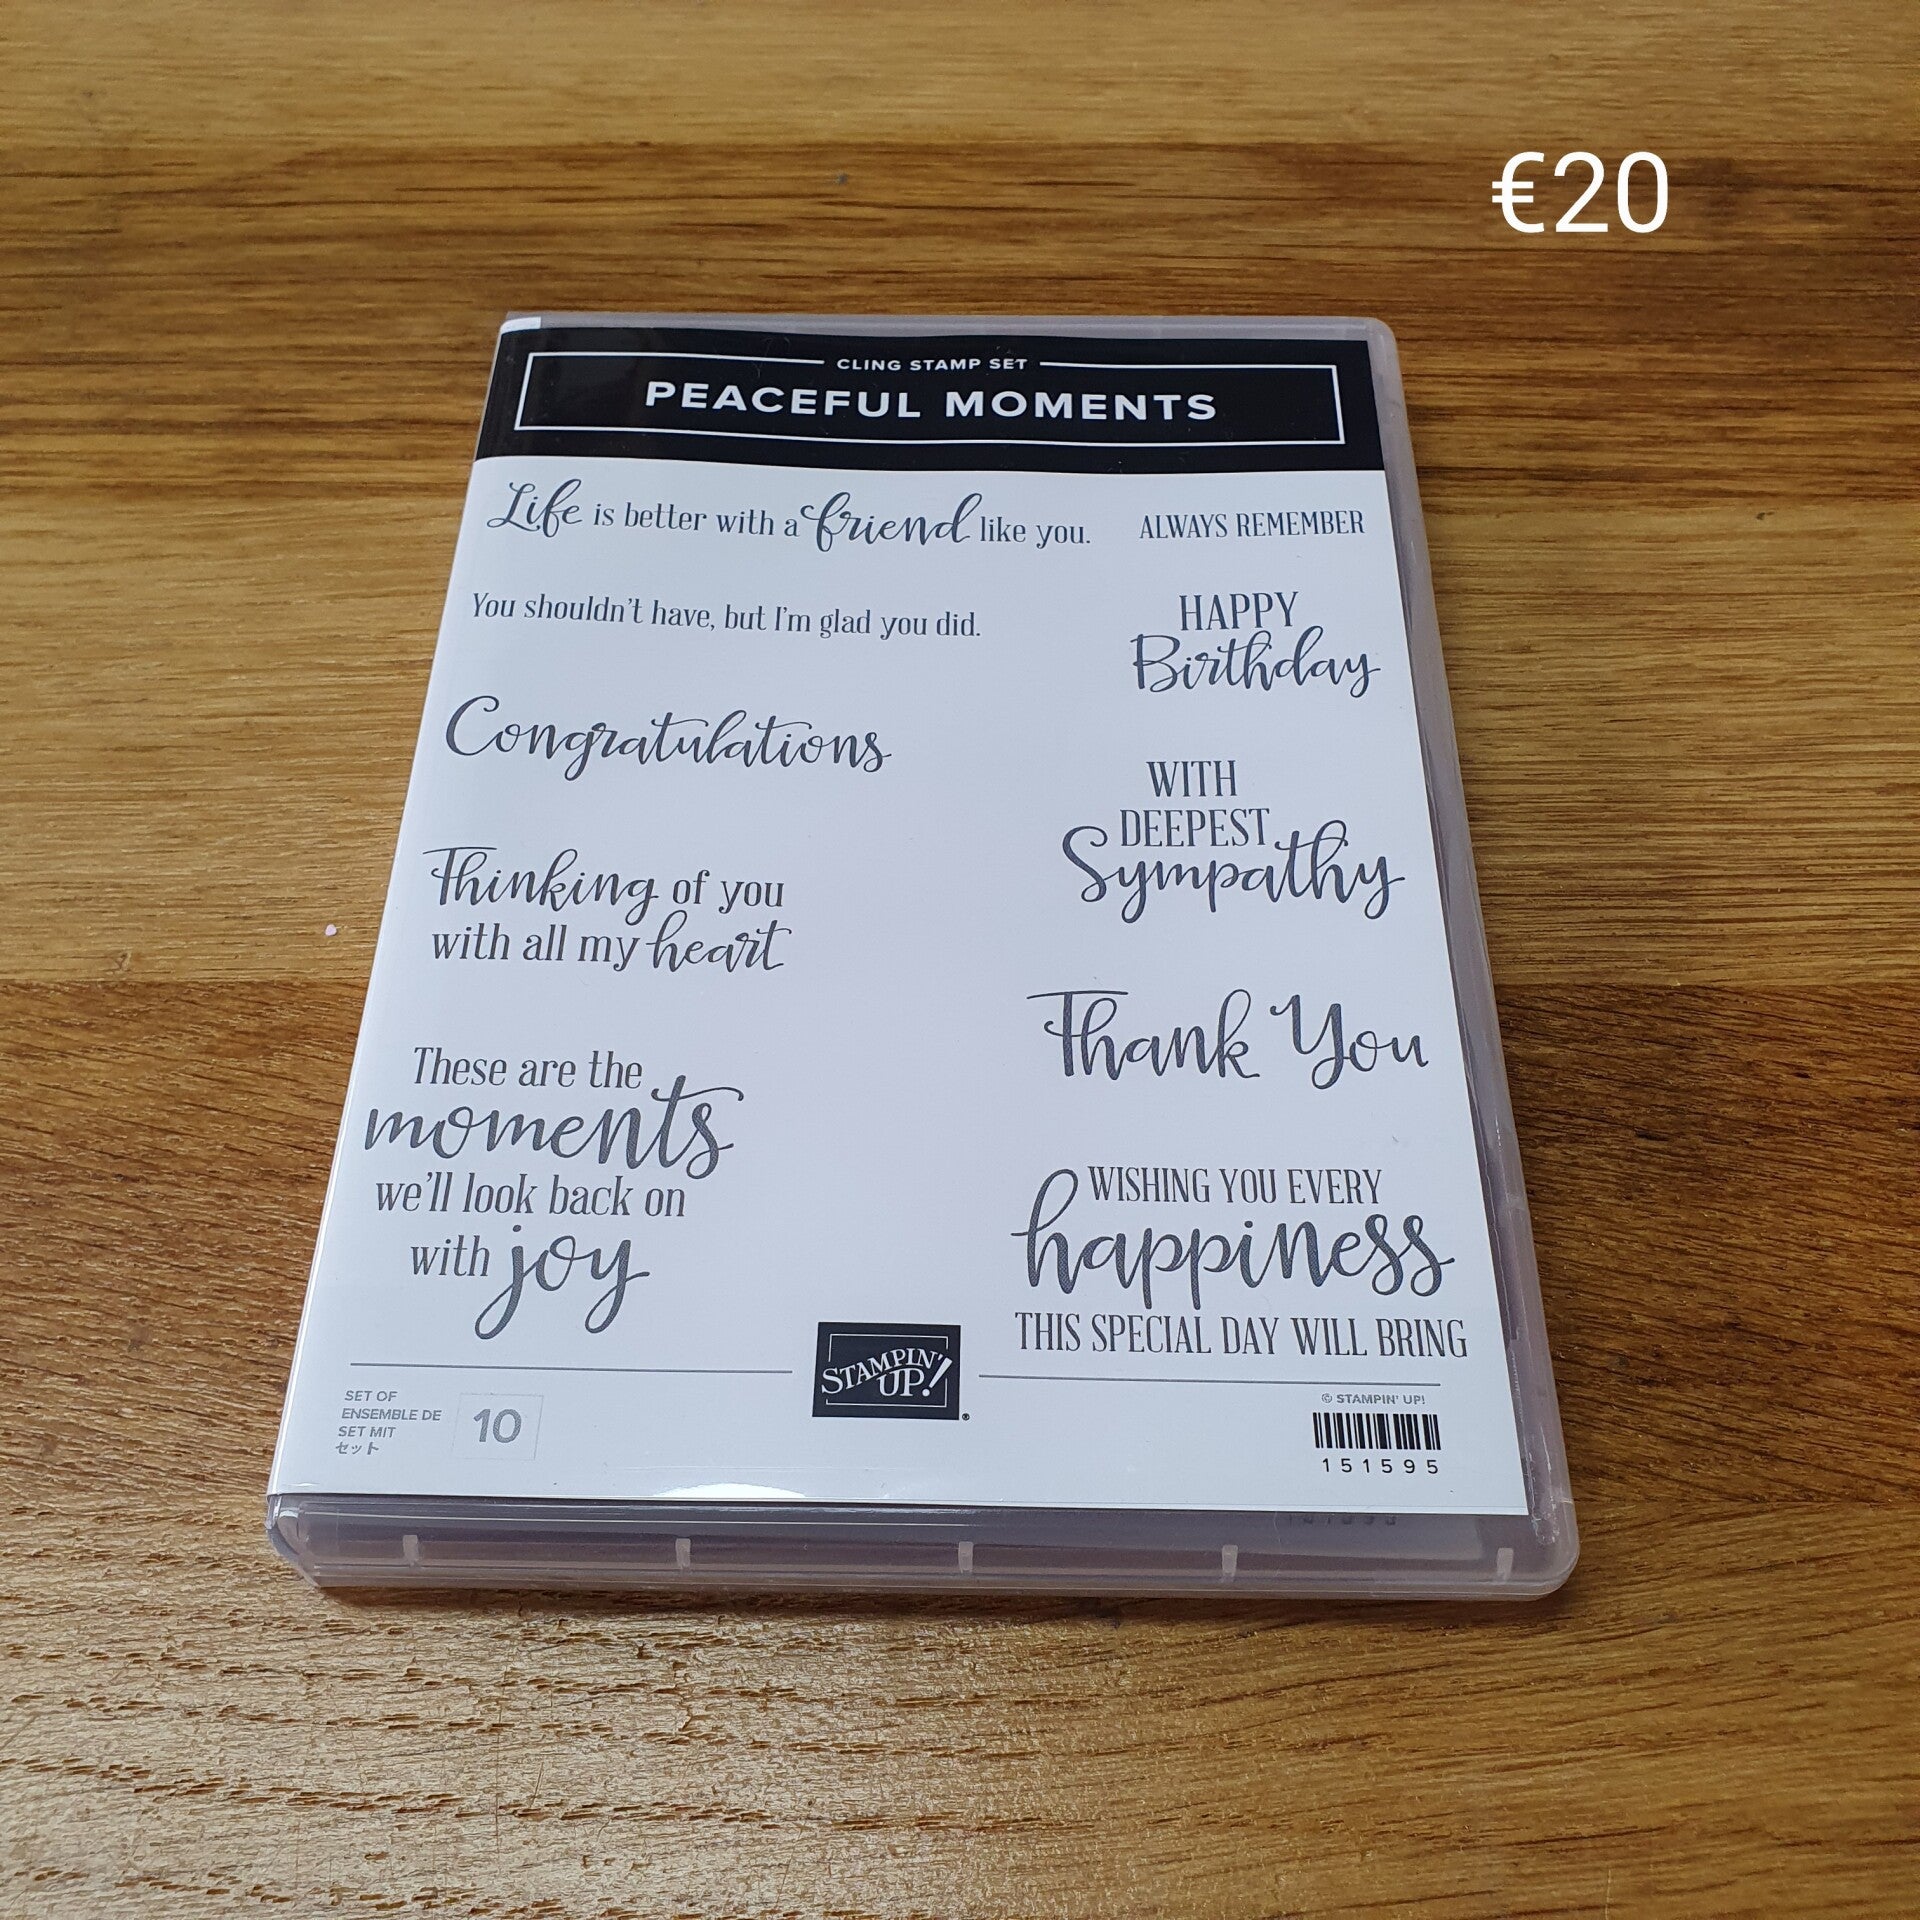 €20
CLING STAMP SET
PEACEFUL MOMENTS
Life is better with a friend like you.
ALWAYS REMEMBER
You shouldn't have, but I'm glad you did.
HAPPY
Birthday
Congratulations
WITH
DEEPEST
Sympathy
Thinking of you
with all my heart
Thank You
These are the
moments
we'll look back on
with joy
WISHING YOU EVERY
happiness
THIS SPECIAL DAY WILL BRING
STAMPIN'
UP!
®
SET OF
ENSEMBLE DE
SET MIT
セット
10
© STAMPIN' UP!
151595